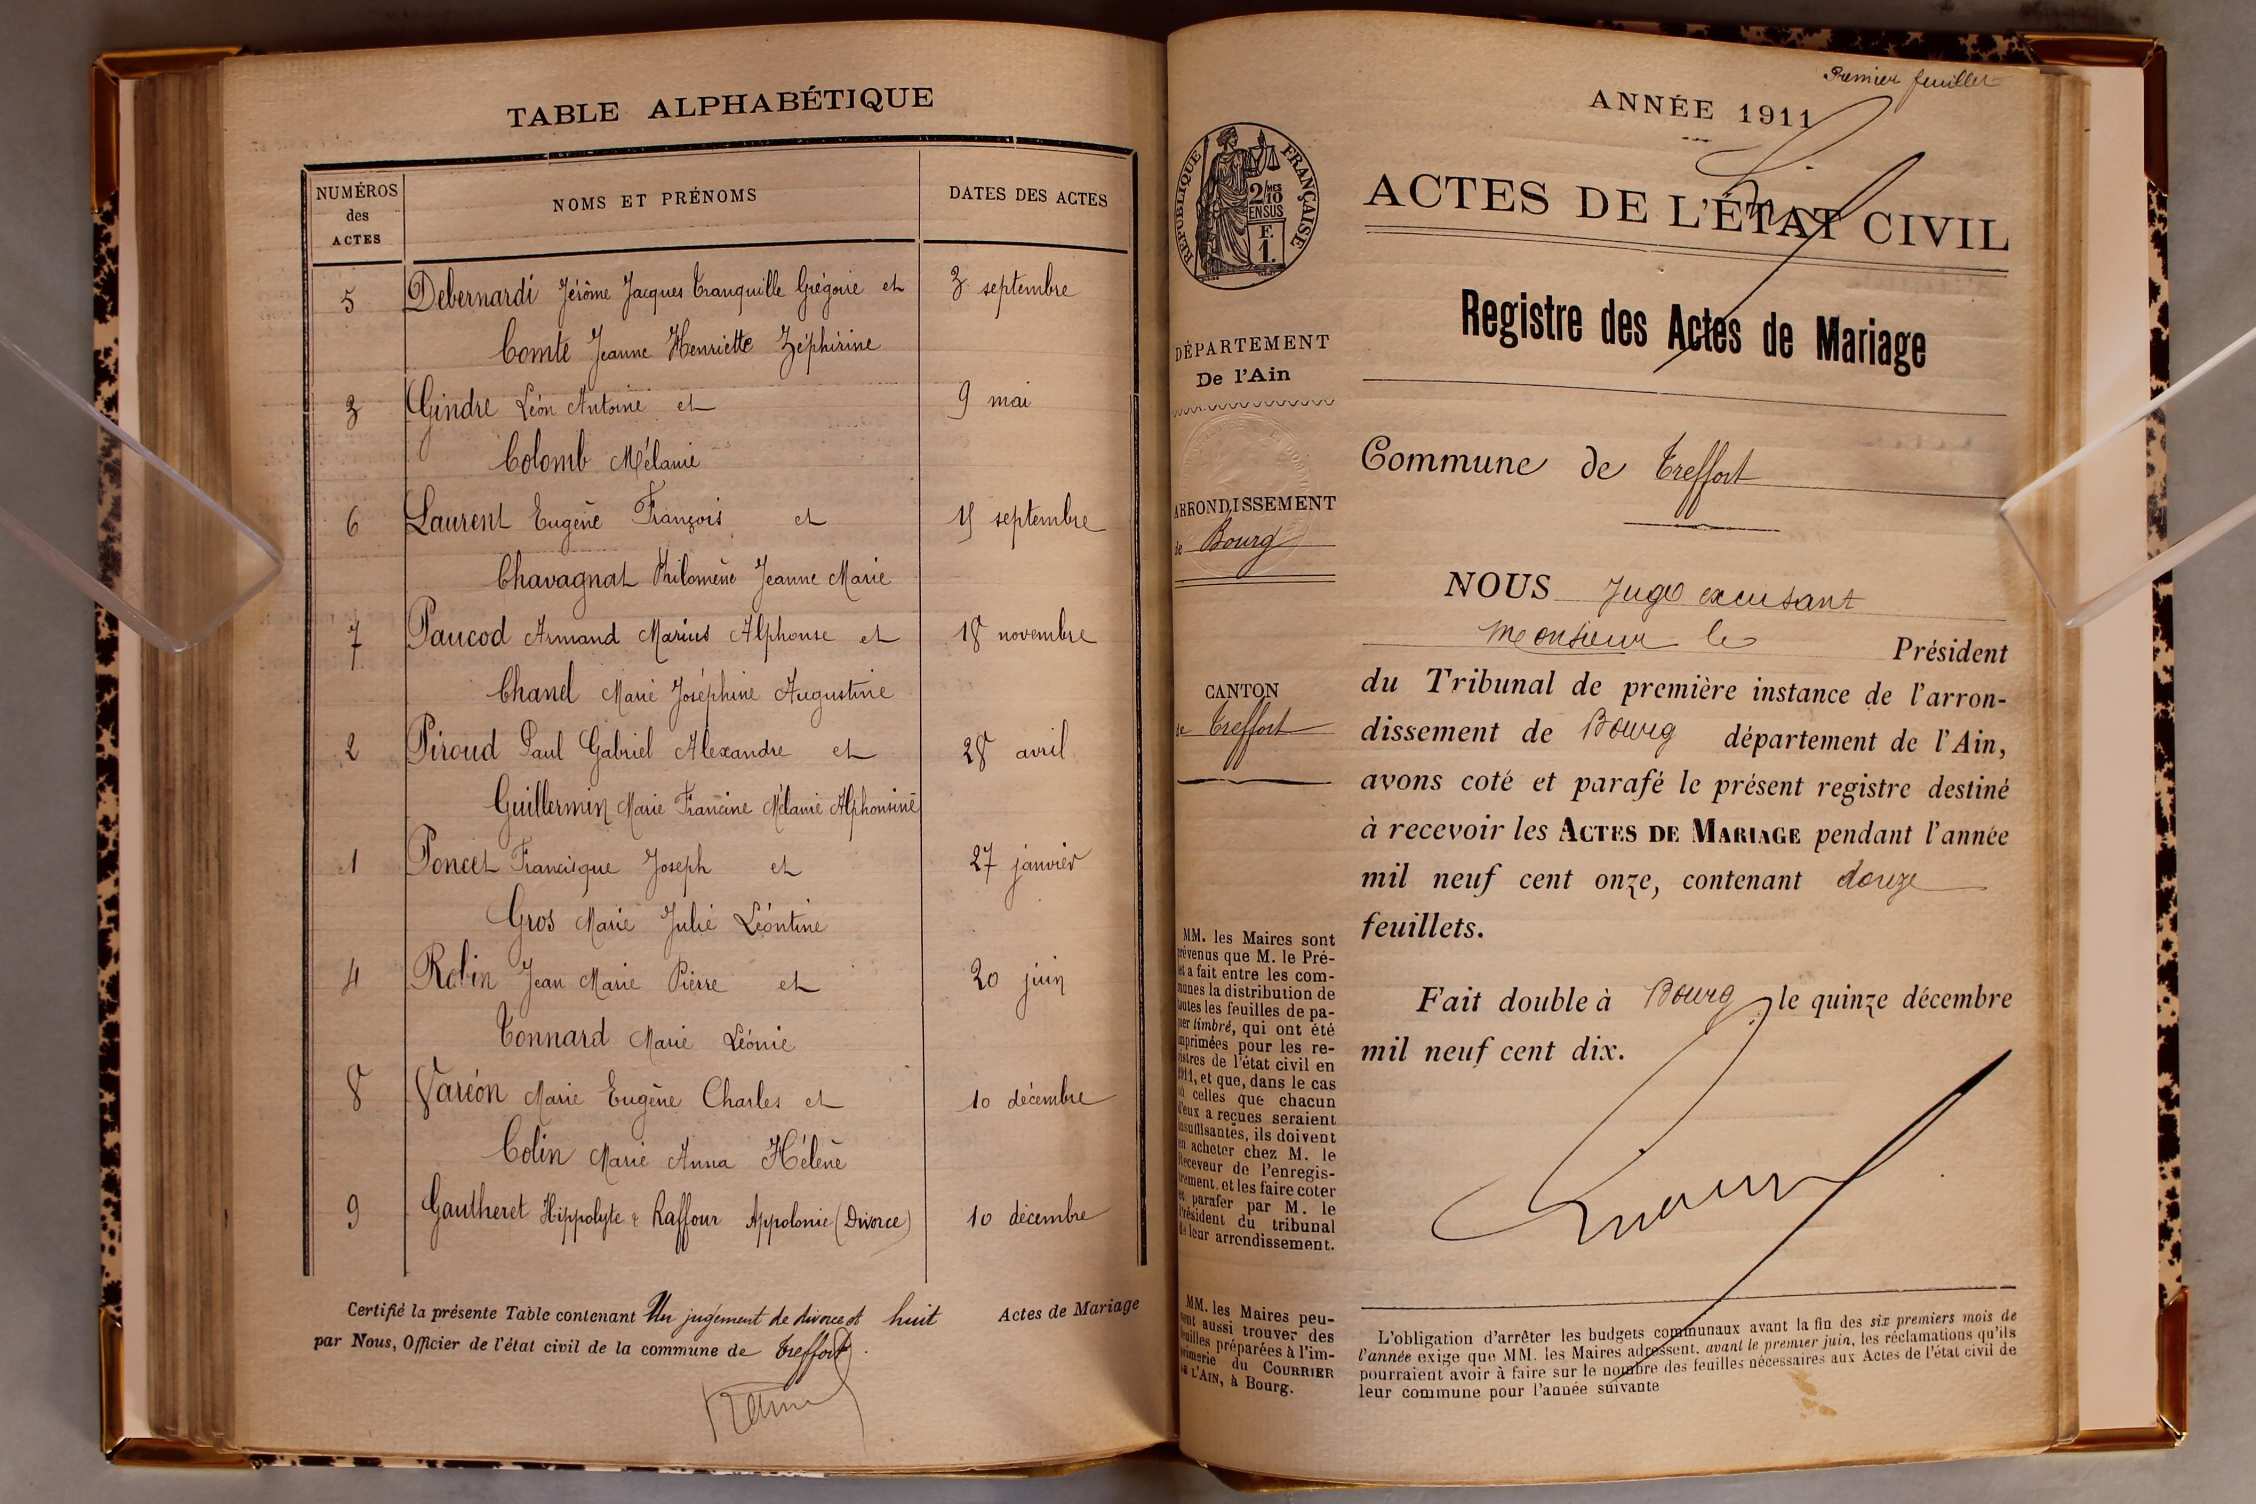 TABLE ALPHABÉTIQUE
NUMÉROS des ACTES
NOMS ET PRÉNOMS
DATES DES ACTES
5 Debernardi Jérôme Jacques Tranquille Grégoire et 3 septembre
Comte Jeanne Henriette Zéphirine
3 Gindre Léon Antoine et 9 mai
Colomb Mélanie
6 Laurent Eugène François et 15 septembre
Chavagnat Philomène Jeanne Marie
7 Paucod Armand Marius Alphonse et 18 novembre
Chanel Marie Joséphine Augustine
2 Piroud Paul Gabriel Alexandre et 28 avril
Guillermin Marie Francine Mélanie Alphonsine
1 Poncet Francisque Joseph et 27 janvier
Gros Marie Julie Léontine
4 Robin Jean Marie Pierre et 20 juin
Tonnard Marie Léonie
8 Varéon Marie Eugène Charles et 10 décembre
Colin Marie Anna Hélène
9 Gautheret Hippolyte & Raffour Appolonie (Divorce) 10 décembre
Certifié la présente Table contenant Un jugement de divorce et huit Actes de Mariage
par Nous, Officier de l'état civil de la commune de Treffort.
Premier feuillet
ANNÉE 1911
ACTES DE L'ÉTAT CIVIL
Registre des Actes de Mariage
RÉPUBLIQUE FRANÇAISE
2/10MES
EN SUS
F.
1.
DÉPARTEMENT
De l'Ain
ARRONDISSEMENT
de Bourg
CANTON
de Treffort
MM. les Maires sont
prévenus que M. le Pré-
fet a fait entre les com-
munes la distribution de
toutes les feuilles de pa-
pier timbré, qui ont été
imprimées pour les re-
gistres de l'état civil en
1911, et que, dans le cas
où celles que chacun
d'eux a reçues seraient
insuffisantes, ils doivent
en acheter chez M. le
Receveur de l'enregis-
trement, et les faire coter
et parafer par M. le
Président du tribunal
de leur arrondissement.
MM. les Maires peu-
vent aussi trouver des
feuilles préparées à l'im-
primerie du COURRIER
DE L'AIN, à Bourg.
Commune de Treffort
NOUS Juge excusant
Monsieur le Président
du Tribunal de première instance de l'arron-
dissement de Bourg département de l'Ain,
avons coté et parafé le présent registre destiné
à recevoir les ACTES DE MARIAGE pendant l'année
mil neuf cent onze, contenant douze
feuillets.
Fait double à Bourg, le quinze décembre
mil neuf cent dix.
L'obligation d'arrêter les budgets communaux avant la fin des six premiers mois de
l'année exige que MM. les Maires adressent, avant le premier juin, les réclamations qu'ils
pourraient avoir à faire sur le nombre des feuilles nécessaires aux Actes de l'état civil de
leur commune pour l'année suivante